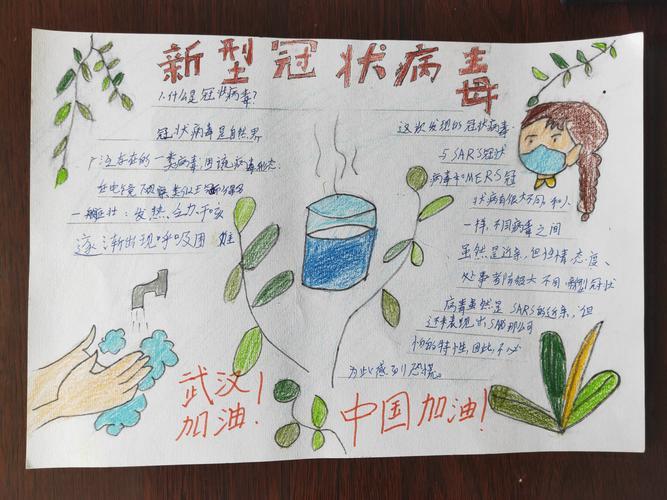 新型冠状病毒
1.什么是冠状病毒?
冠状病毒是自然界
广泛存在的一类病毒,因该病毒形态
在电镜下观察类似王冠而得名
一般症状:发热、乏力、干咳
逐渐出现呼吸困难
这次发现的冠状病毒
与SARS冠状
病毒和MERS冠
状病毒
一样,不同病毒之间
虽然是近亲,但性情、态度、
处事方
不同,新型冠状
病毒虽然是SARS的近亲,但
还未表现出SARS那么
怕的特性,因此,不必
为此感到恐慌。
武汉
加油!
中国加油!